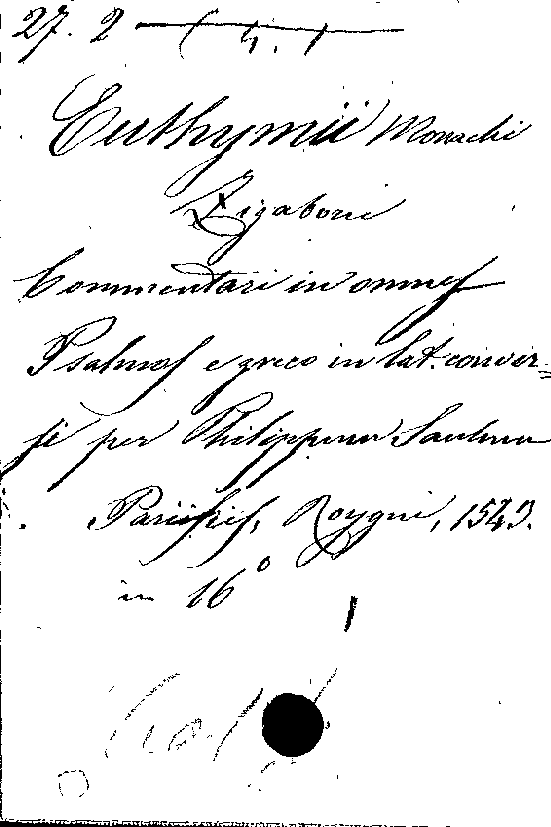 27. 2
Euthymii Monachi
Zigaboni
Commentari in omnes
Psalmos e greco in lat. conver=
si per Philippum Saulum
Pariisis, Roygni, 1543.
in 16°